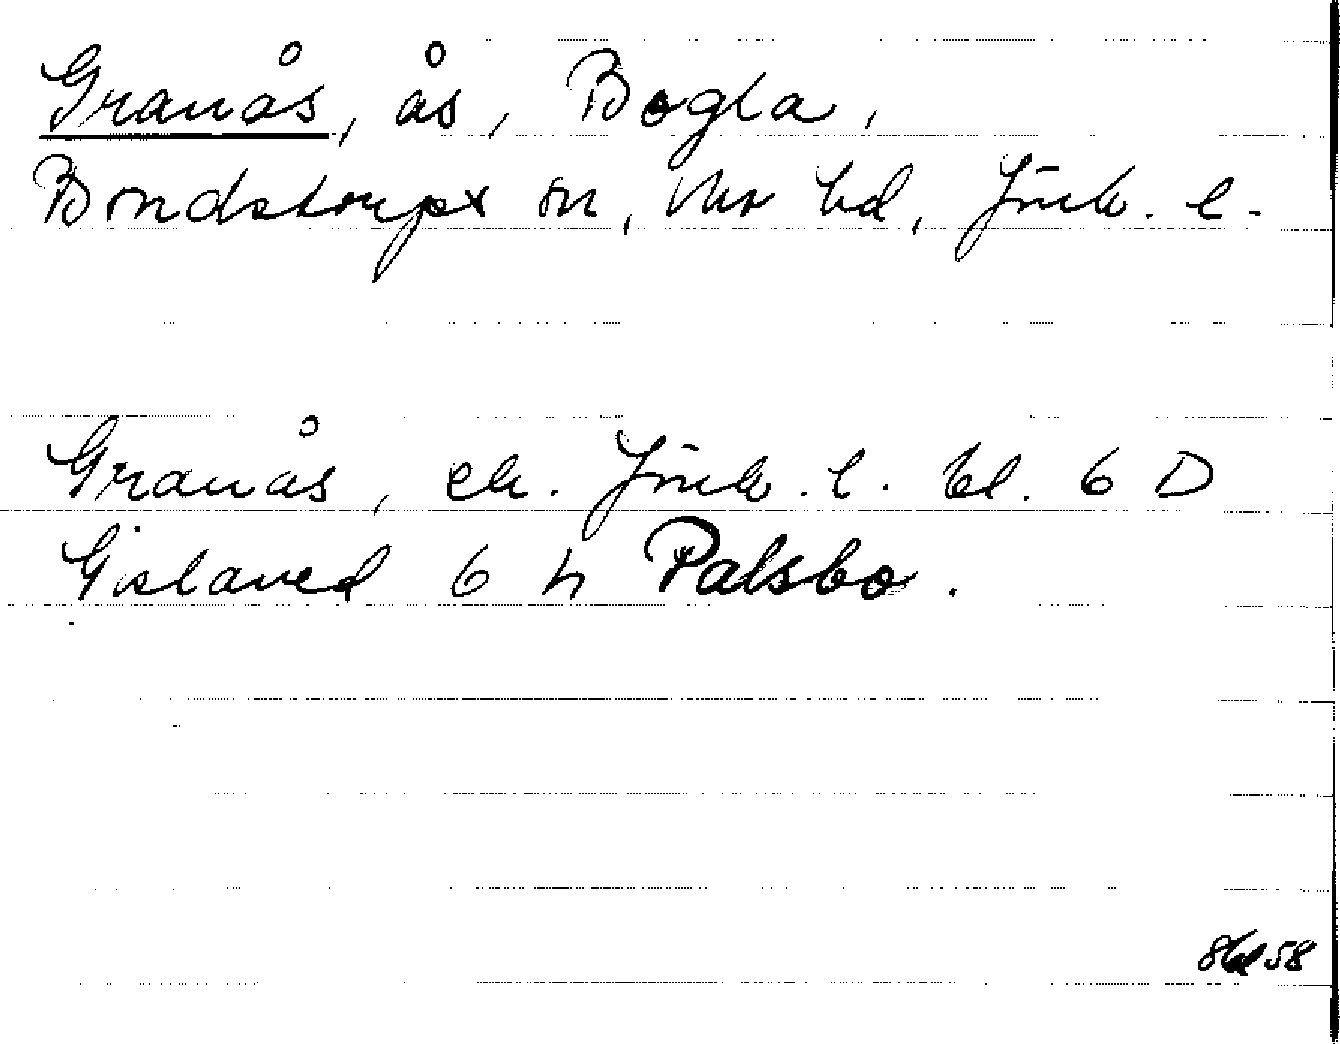 Granås, ås, Bogla,
Bondstorps sn, Mo hd, Jönk. l.
Granås, ek. Jönk. l. bl. 6 D
Gislaved 6 h Palsbo.